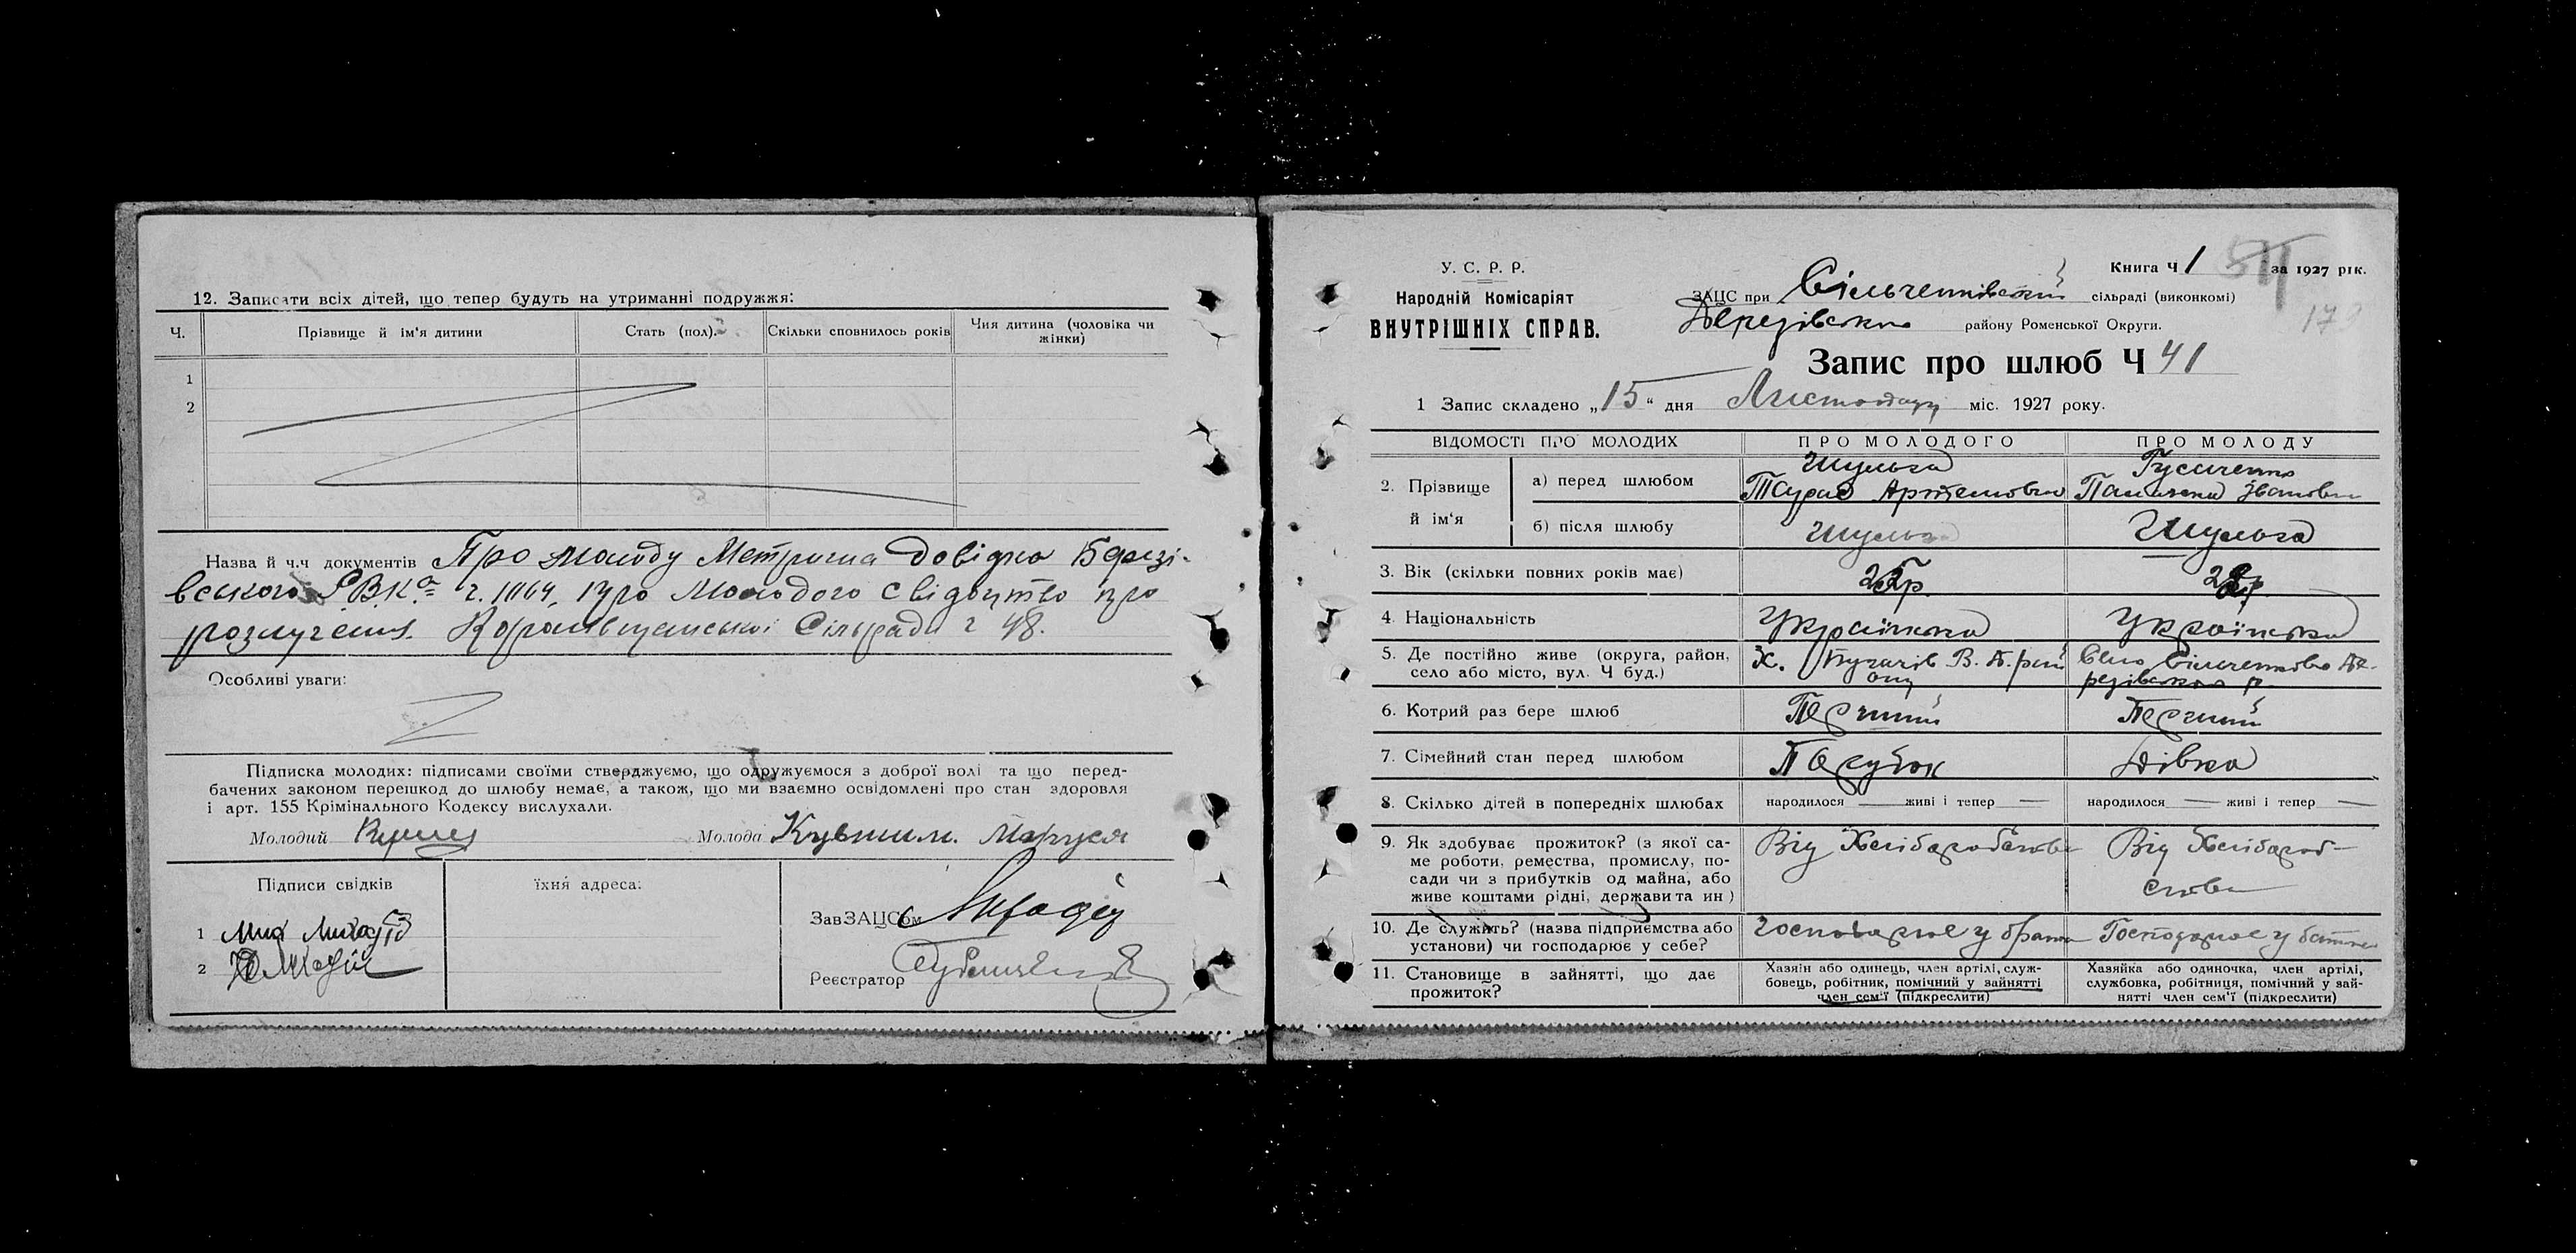 12. Записати всіх дітей, що тепер будуть на утриманні подружжя:
Ч. Прізвище й ім'я дитини Стать (пол). Скільки сповнилось років Чия дитина (чоловіка чи жінки)
1
2
Назва й ч.ч документів Про молоду Метрична довідка
Р.В.К. ч. 1064, про молодого свідоцтво про
розлучення. Сільради ч 48.
Особливі уваги:
Підписка молодих: підписами своїми стверджуємо, що одружуємося з доброї волі та що перед-
бачених законом перешкод до шлюбу немає, а також, що ми взаємно освідомлені про стан здоровля
і арт. 155 Крімінального Кодексу вислухали.
Молодий Молода Маруся
Підписи свідків їхня адреса:
ЗавЗАЦСом
1
2
Реєстратор
У. С. Р. Р.
Народній Комісаріят
ВНУТРІШНІХ СПРАВ.
Книга Ч 1 за 1927 рік.
ЗАЦС при сільраді (виконкомі)
району Роменської Округи.
Запис про шлюб Ч 41
1 Запис складено „15" дня Листопаду міс. 1927 року.
ВІДОМОСТІ ПРО МОЛОДИХ ПРО МОЛОДОГО ПРО МОЛОДУ
2. Прізвище й ім'я
а) перед шлюбом Шульга Тарас Артемович Іванівн
б) після шлюбу Шульга Шульга
3. Вік (скільки повних років має)
4. Національність Українська Українська
5. Де постійно живе (округа, район, Х. Село
село або місто, вул. Ч буд.)
6. Котрий раз бере шлюб Перший Перший
7. Сімейний стан перед шлюбом Парубок Дівка
8. Скілько дітей в попередніх шлюбах народилося — живі і тепер — народилося — живі і тепер —
9. Як здобуває прожиток? (з якої са-
ме роботи, ремества, промислу, по-
сади чи з прибутків од майна, або
живе коштами рідні, держави та ин)
Від Від
10. Де служить? (назва підприємства або
установи) чи господарює у себе?
Господарює у брата Господарює у батька
11. Становище в зайнятті, що дає
прожиток?
Хазяїн або одинець, член артілі, служ-
бовець, робітник, помічний у зайнятті
член сем'ї (підкреслити)
Хазяйка або одиночка, член артілі,
службовка, робітниця, помічний у зай-
нятті член сем'ї (підкреслити)